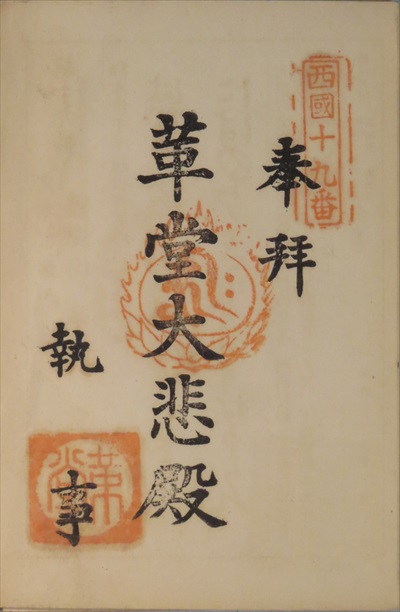 西國十九番
奉拜
革堂大悲殿
執事